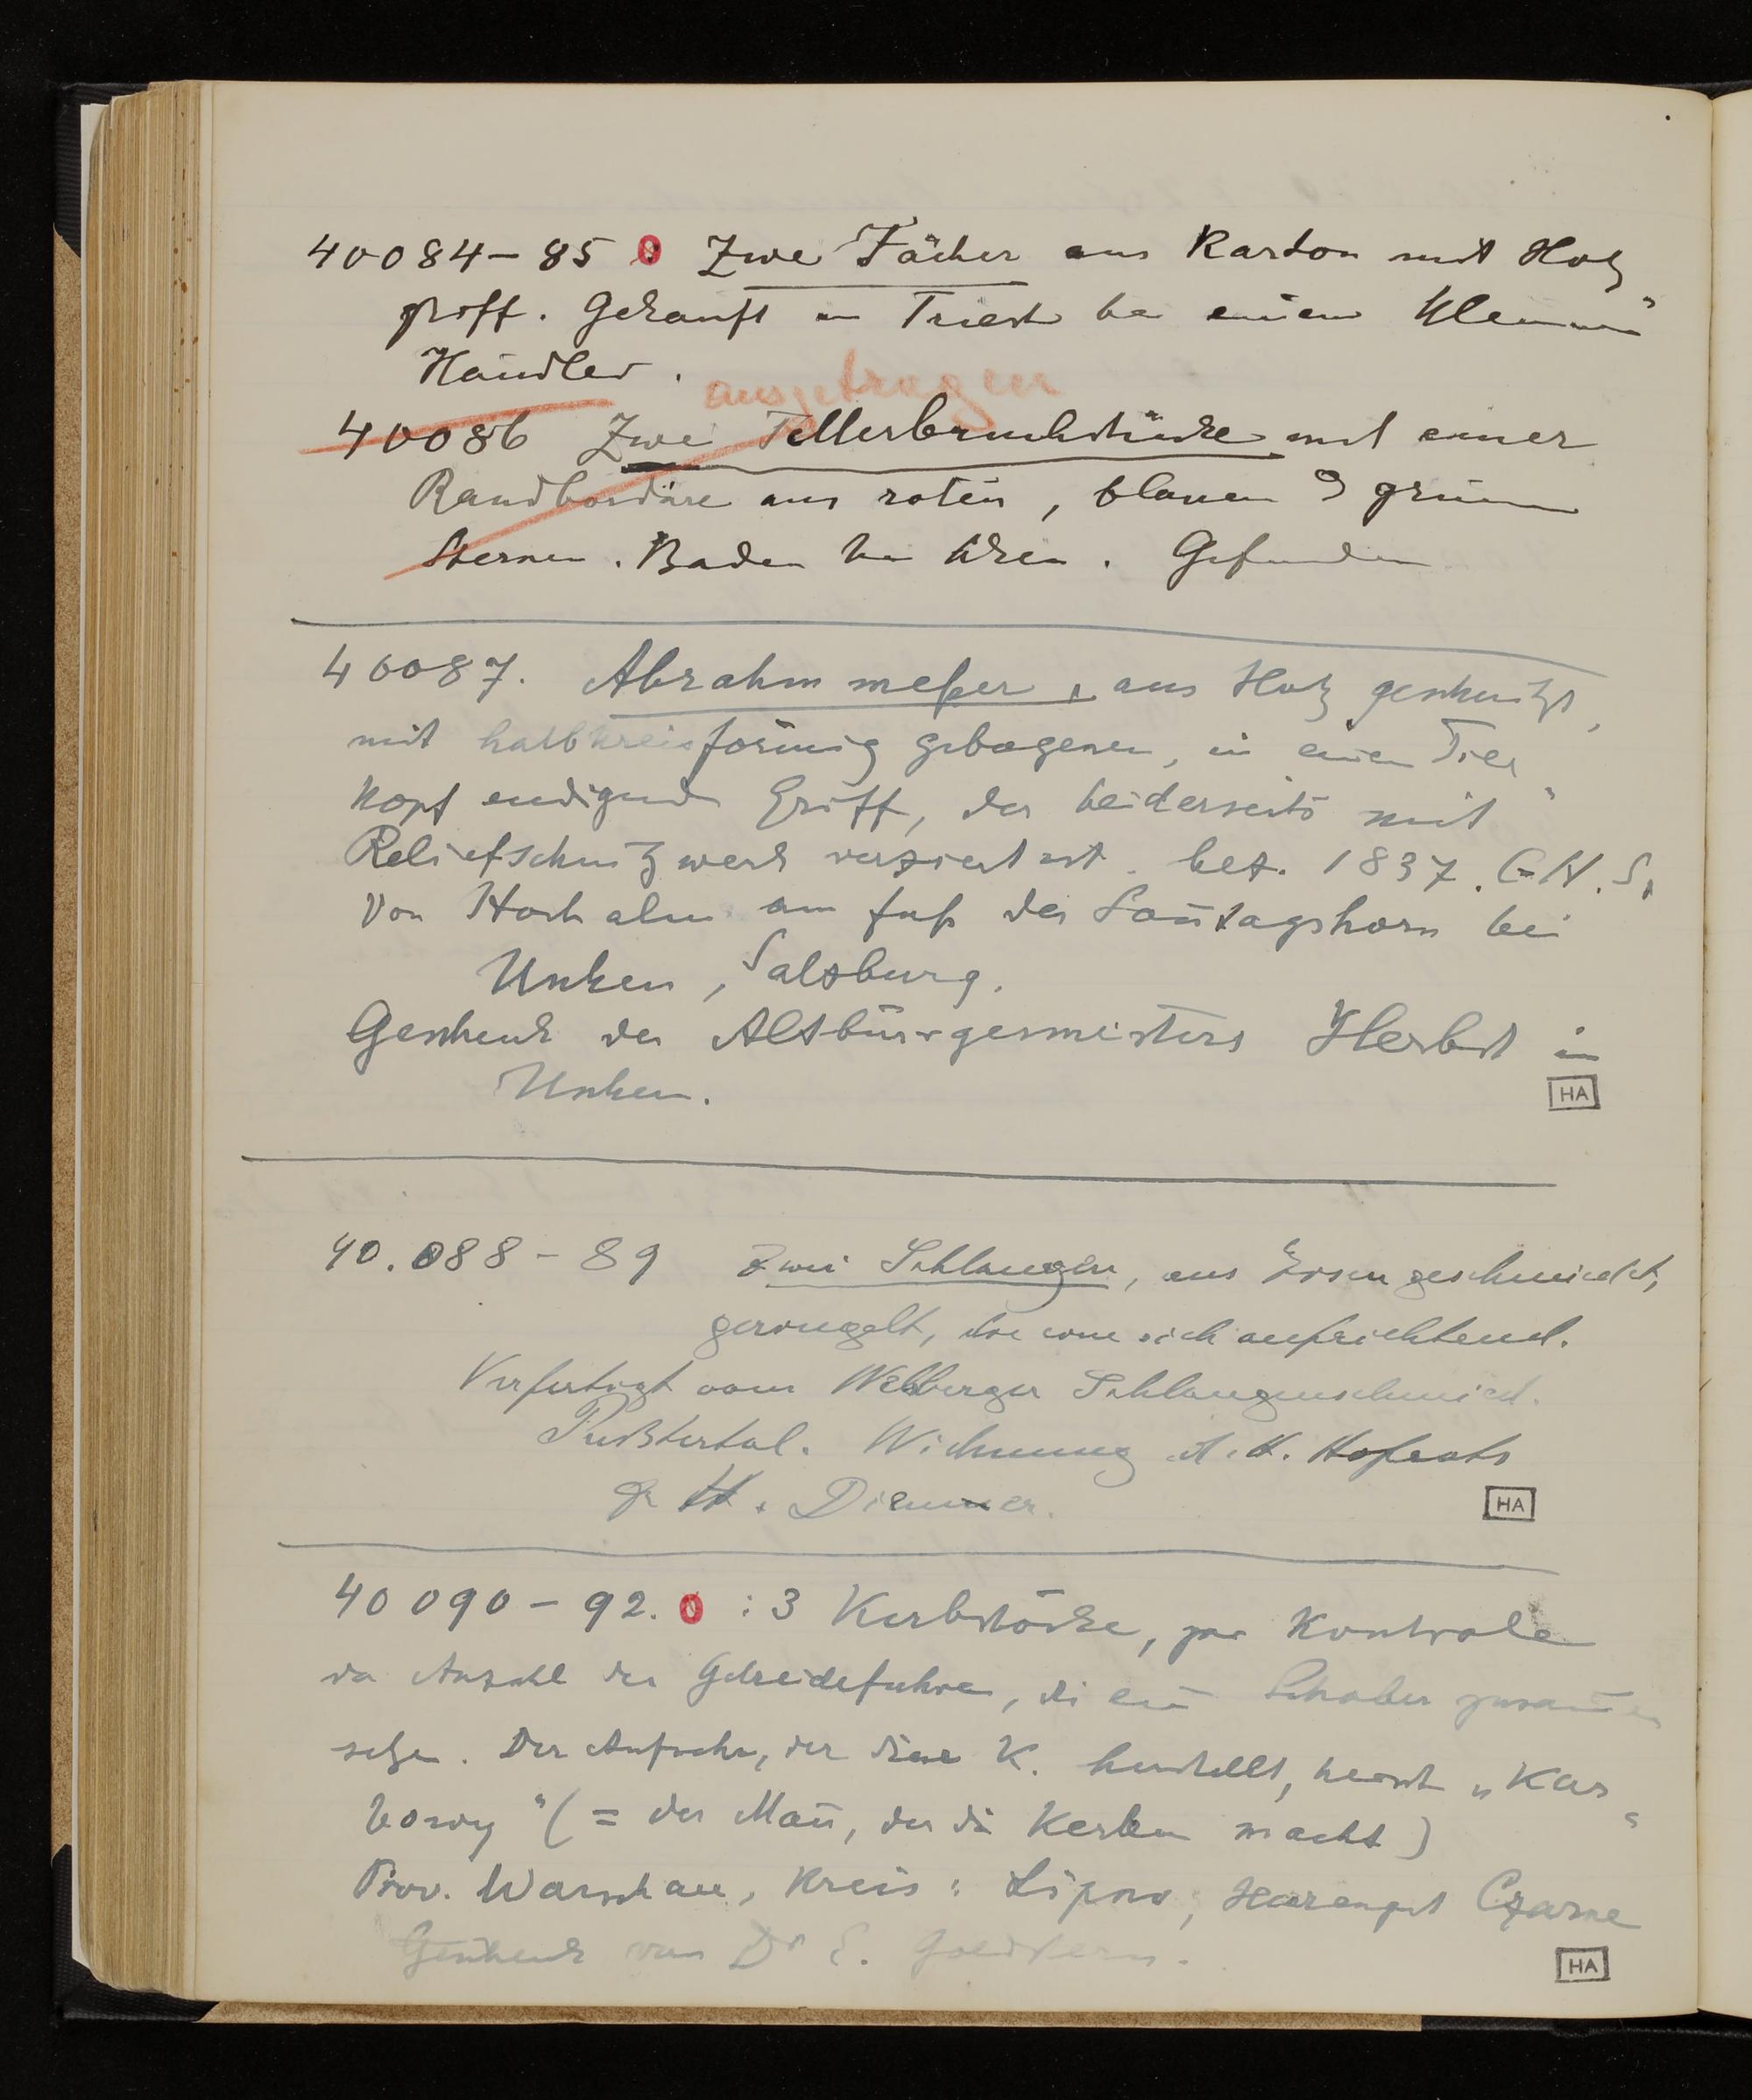 40084–85 0 Zwei Fächer aus Karton mit Holz
griff. Gekauft in Triest bei einem kleinen
Händler.
ausgetragen
40086 Zwei Tellerbruchstücke mit einer
Randbordüre aus roten, blauen & grünen
Sternen. Baden bei Wien. Gefunden
40087. Abrahm meßer, aus Holz geschnitzt,
mit halbkreisförmig gebogenen, in einen Tier
kopf endigend Griff, der beiderseits mit
Reliefschnitzwerk verziert ist. bez. 1837. G.H.S.
Von Hochalm am fuß des Soñtagshorn bei
Unken, Salzburg.
Geschenk des Altbürgermeisters Herbst in
Unken.
HA
40.088–89 Zwei Schlangen, aus Eisen geschmiedet,
geringelt, die eine sich aufrichtend.
Verfertigt vom Welsberger Schlangenschmied.
Pußtertal. Widmung d. H. Hofrats
Dr H.
HA
40090–92. 0 : 3 Kerbstöcke, zur Kontrole
der Anzahl der Getreidefuhren, die ein Schober zusam̄en
setzen. Der Aufseher, der diese K. herstellt, heisst „Kar
bowy" (= der Mañ, der die Kerben macht)
Prov. Warschau, Kreis: Lipno, Herrengut Czarne
Geschenk von Dr E. Goldstern.
HA